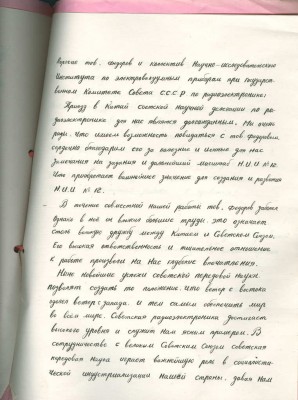 Дорогие тов. Федоров и коллектив Научно-исследовательского
Института по электровакуумным приборам при государст-
венном Комитете Совета СССР по радиоэлектронике:
Приезд в Китай советской научной делегации по ра-
диоэлектронике для нас является долгожданным. Мы очень
рады, что имеем возможность повидаться с тов. Федоровым,
сердечно благодарим его за полезные и ценные для нас
замечания на задания и дальнейший масштаб Н.И.И. №12.
Что приобретает важнейшее значение для создания и развития
Н.И.И. №12.
В течение совместной нашей работы тов. Федоров
Однако в то он вложил большие труды, это означает
столь великую дружбу между Китаем и Советским Союзом.
Его высокая ответственность и тщательное отношение
к работе произвели на нас глубокие впечатления.
Ныне новейшие успехи советской передовой науки
позволят создать то положение, что ветер с востока
одолел ветер с запада. И тем самым обеспечить мир
во всём мире. Советская радиоэлектроника достигает
высокого уровня и служит нам ясным примером. В
сотрудничестве с великим Советским Союзом советская
передовая наука играет важнейшую роль в социалисти-
ческой индустриализации нашей страны, давая нам